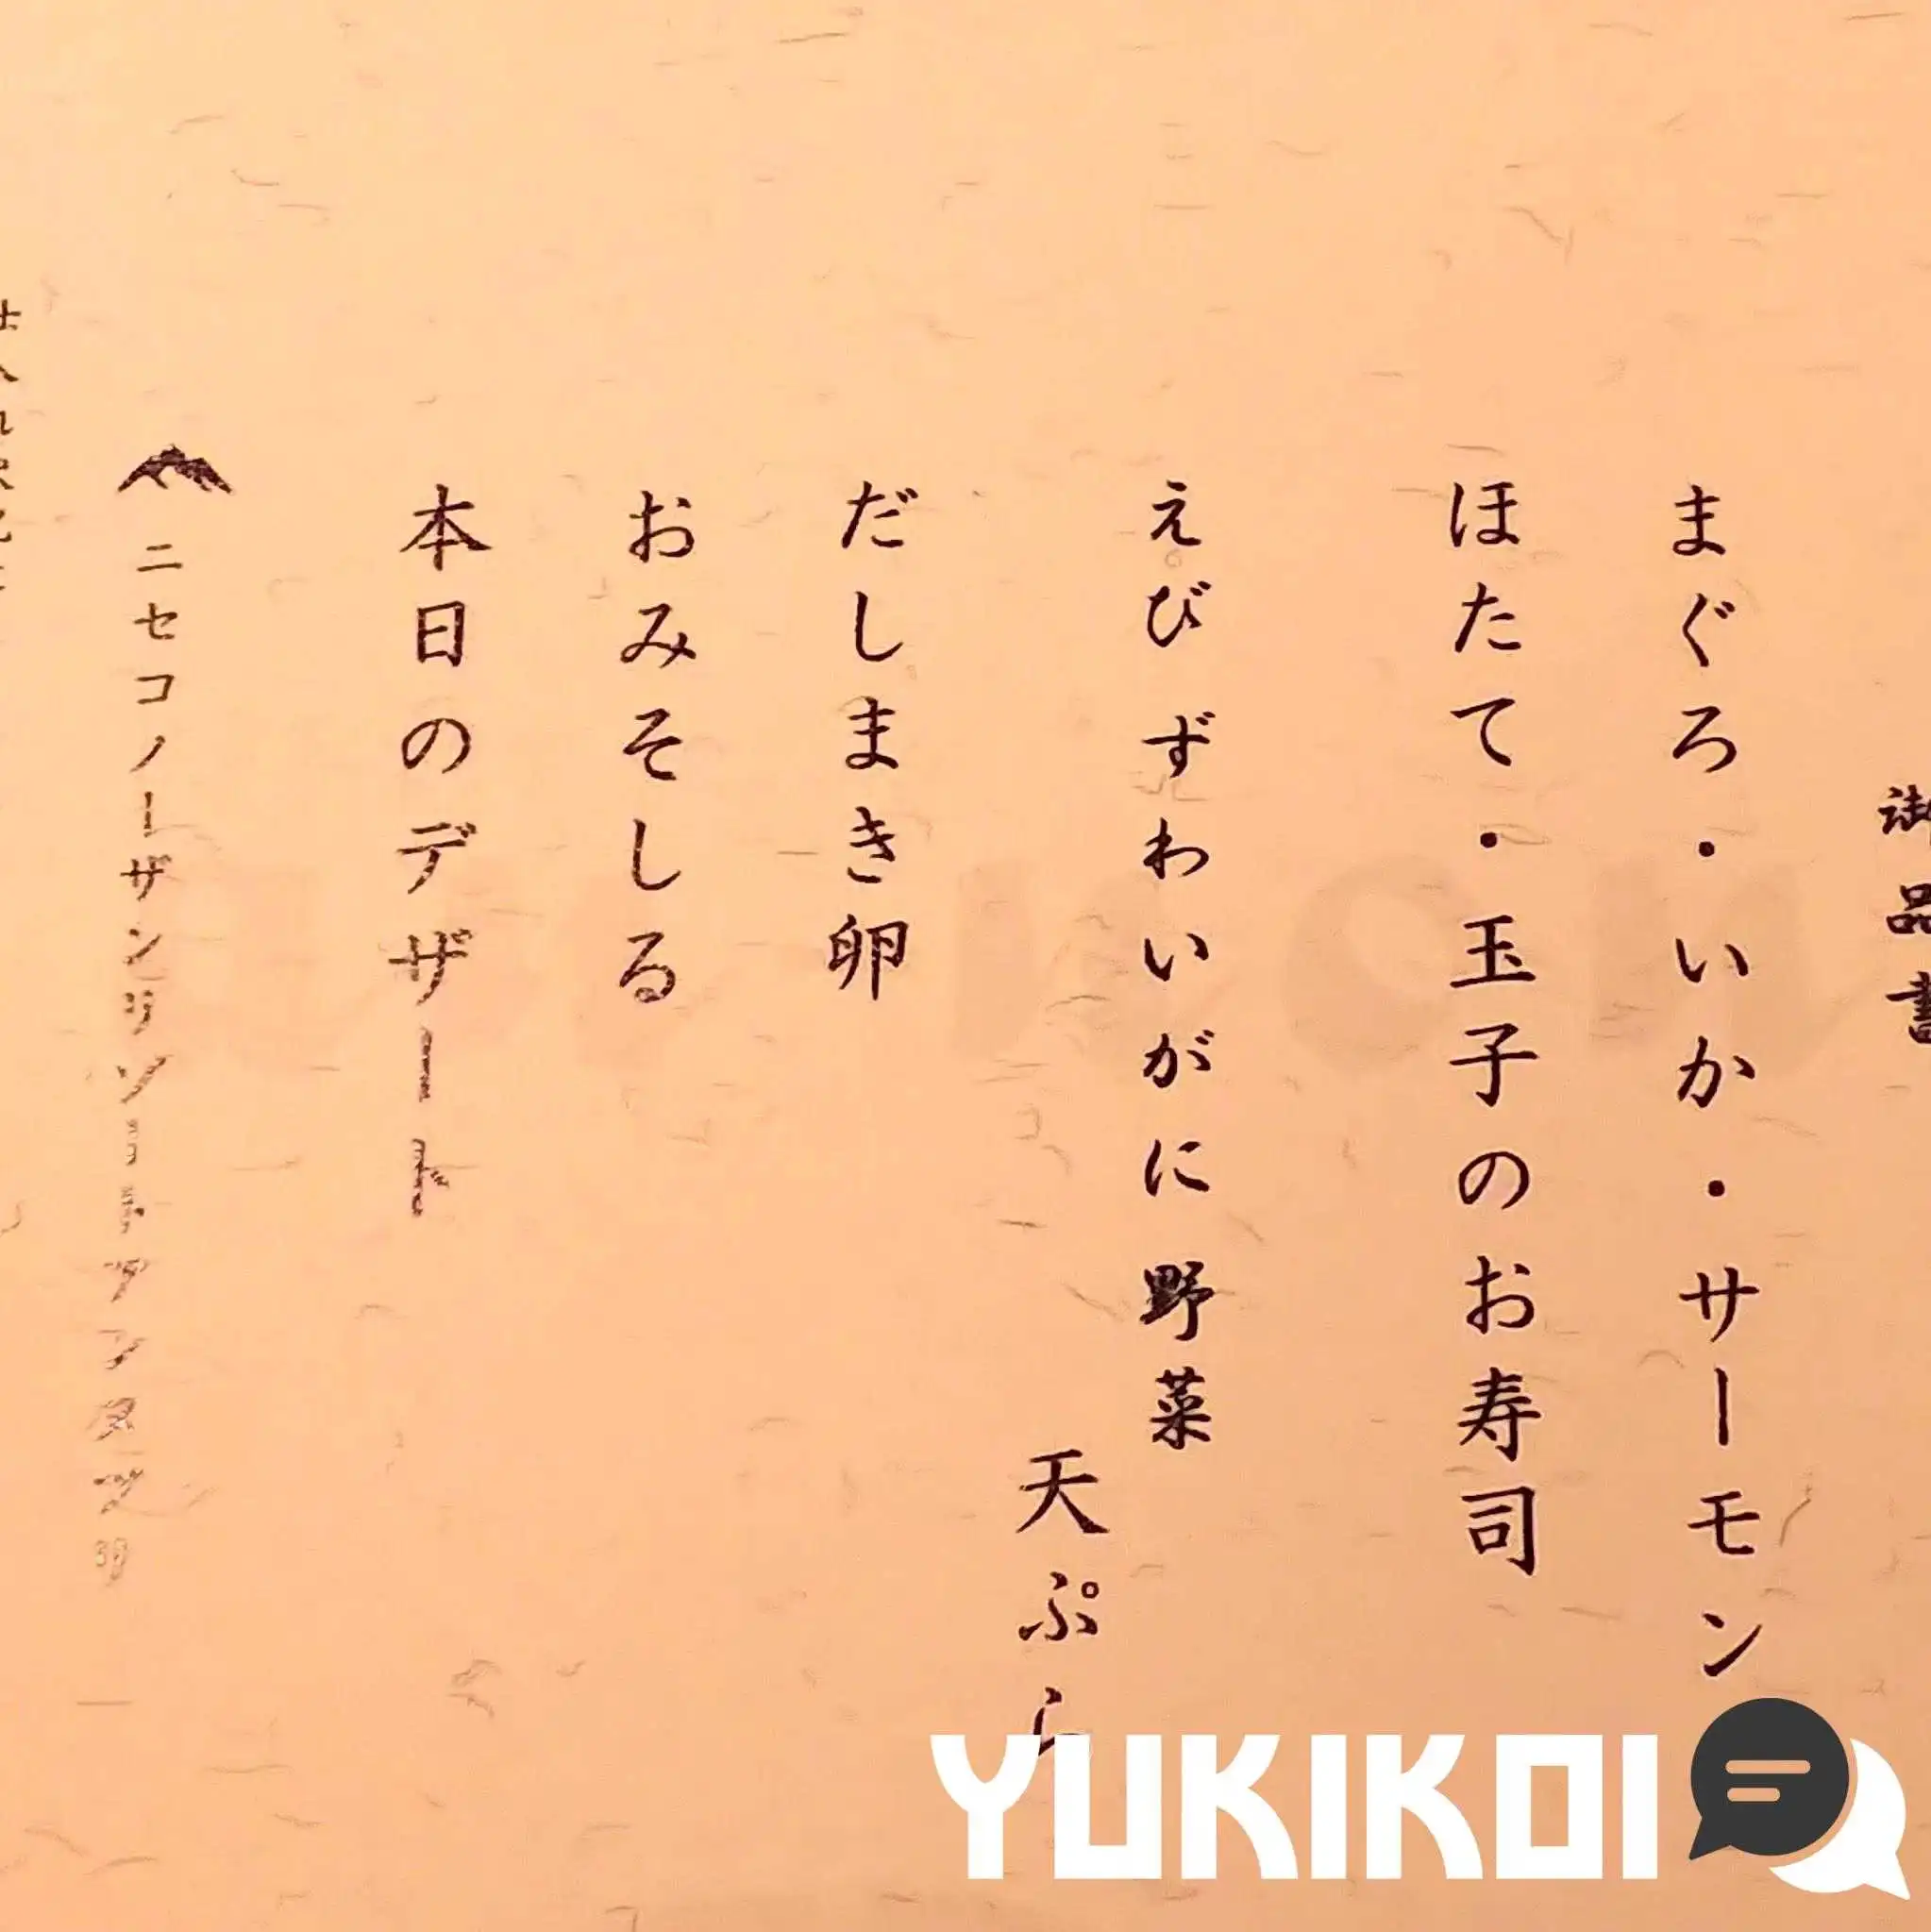 御品書
まぐろ・いか・サーモン
ほたて・玉子のお寿司
えび ずわいがに 野菜
天ぷら
だしまき卵
おみそしる
本日のデザート
ニセコノーザンリゾートアンヌプリ
YUKIKOI